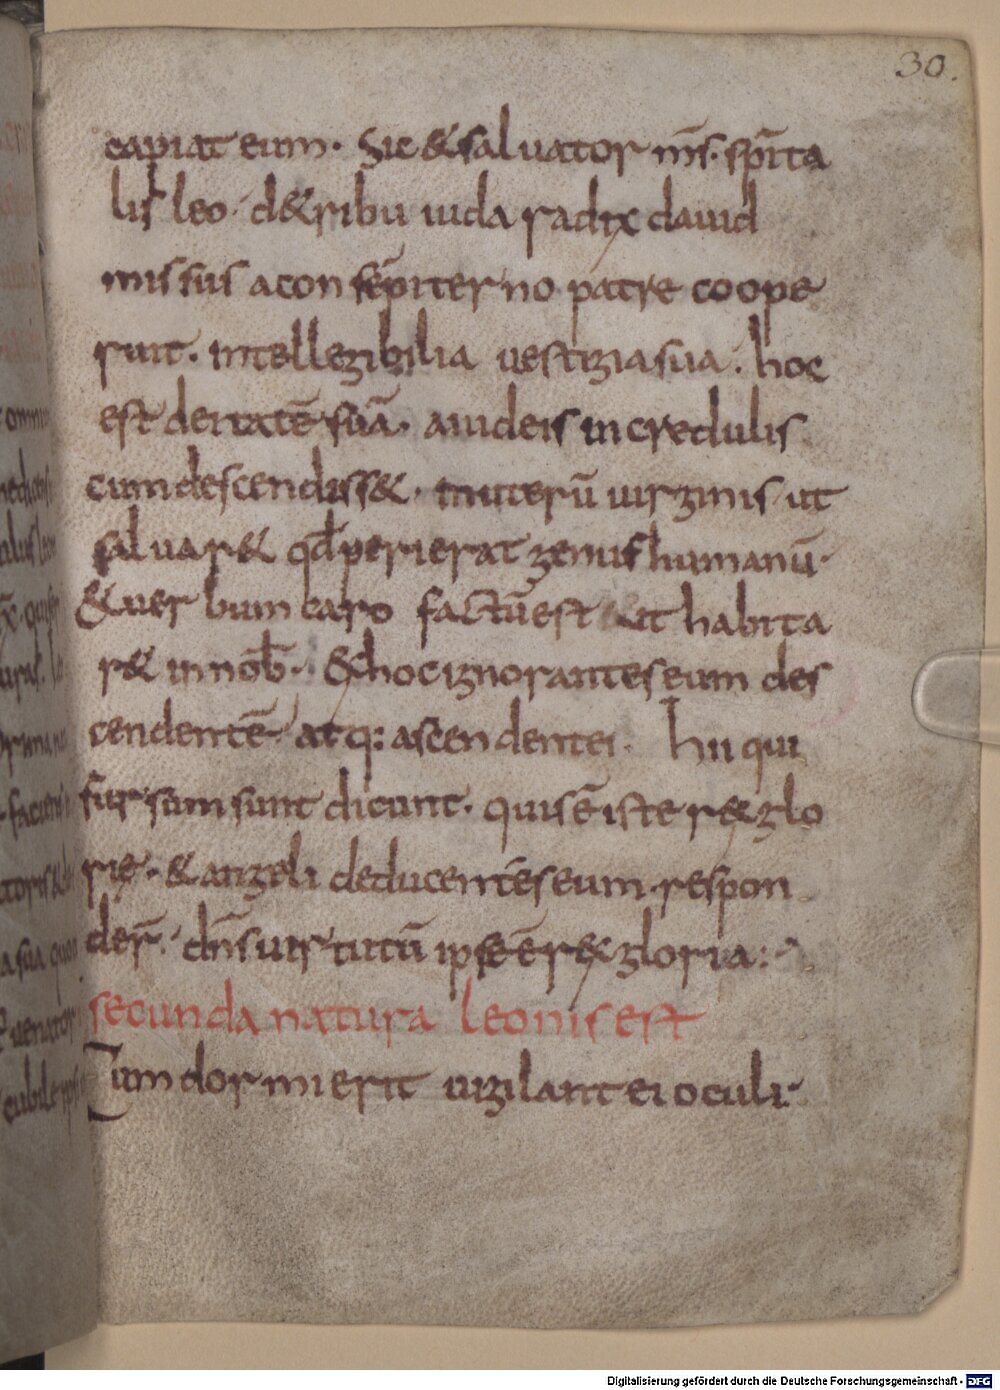 30.
capiat eum. Sic & saluator nr̄s. sp̄rita
lis leo. d&ribu iuda radix dauid
missus a con sēpiterno patre coope
ruit. intellegibilia uestigia sua. hoc
est deitatē suā. a iudeis incredulis
cum descendiss&. in uterū uirginis ut
saluar& qđ perierat genus humanū.
& uerbum caro factū est & ut habita
r& in nob̄. & hoc ignorantes eum des
cendentē atq: ascendentē. hii qui
sūrsum sunt dicunt. quis ē iste rex glo
rię. & angeli deducentēs eum respon
der̄. dn̄s uirtutū ipse ē rex gloria:
secunda natura leonis est
Cum dormierit uigilant ei oculi
Digitalisierung gefördert durch die Deutsche Forschungsgemeinschaft - DFG